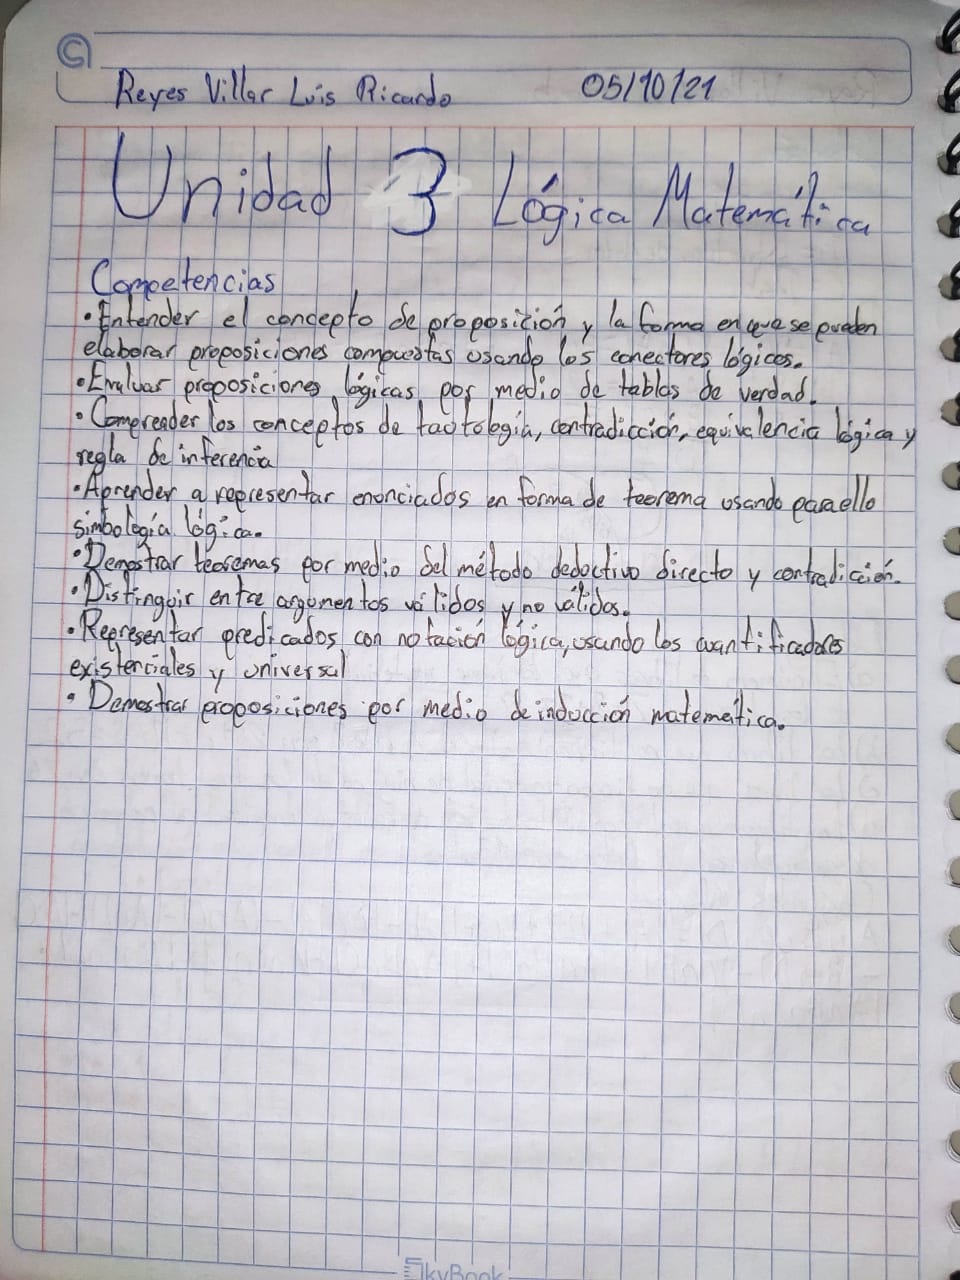 Reyes Villar Luis Ricardo 05/10/21
Unidad 3 Lógica Matemática
Competencias
• Entender el concepto de proposición y la forma en que se pueden
elaborar proposiciones compuestas usando los conectores lógicos.
• Evaluar proposiciones lógicas por medio de tablas de verdad.
• Comprender los conceptos de tautología, contradicción, equivalencia lógica y
regla de inferencia
• Aprender a representar enunciados en forma de teorema usando para ello
simbología lógica.
• Demostrar teoremas por medio del método deductivo directo y contradicción.
• Distinguir entre argumentos válidos y no válidos.
• Representar predicados con notación lógica, usando los cuantificadores
existenciales y universal
• Demostrar proposiciones por medio de inducción matemática.
SkyBook